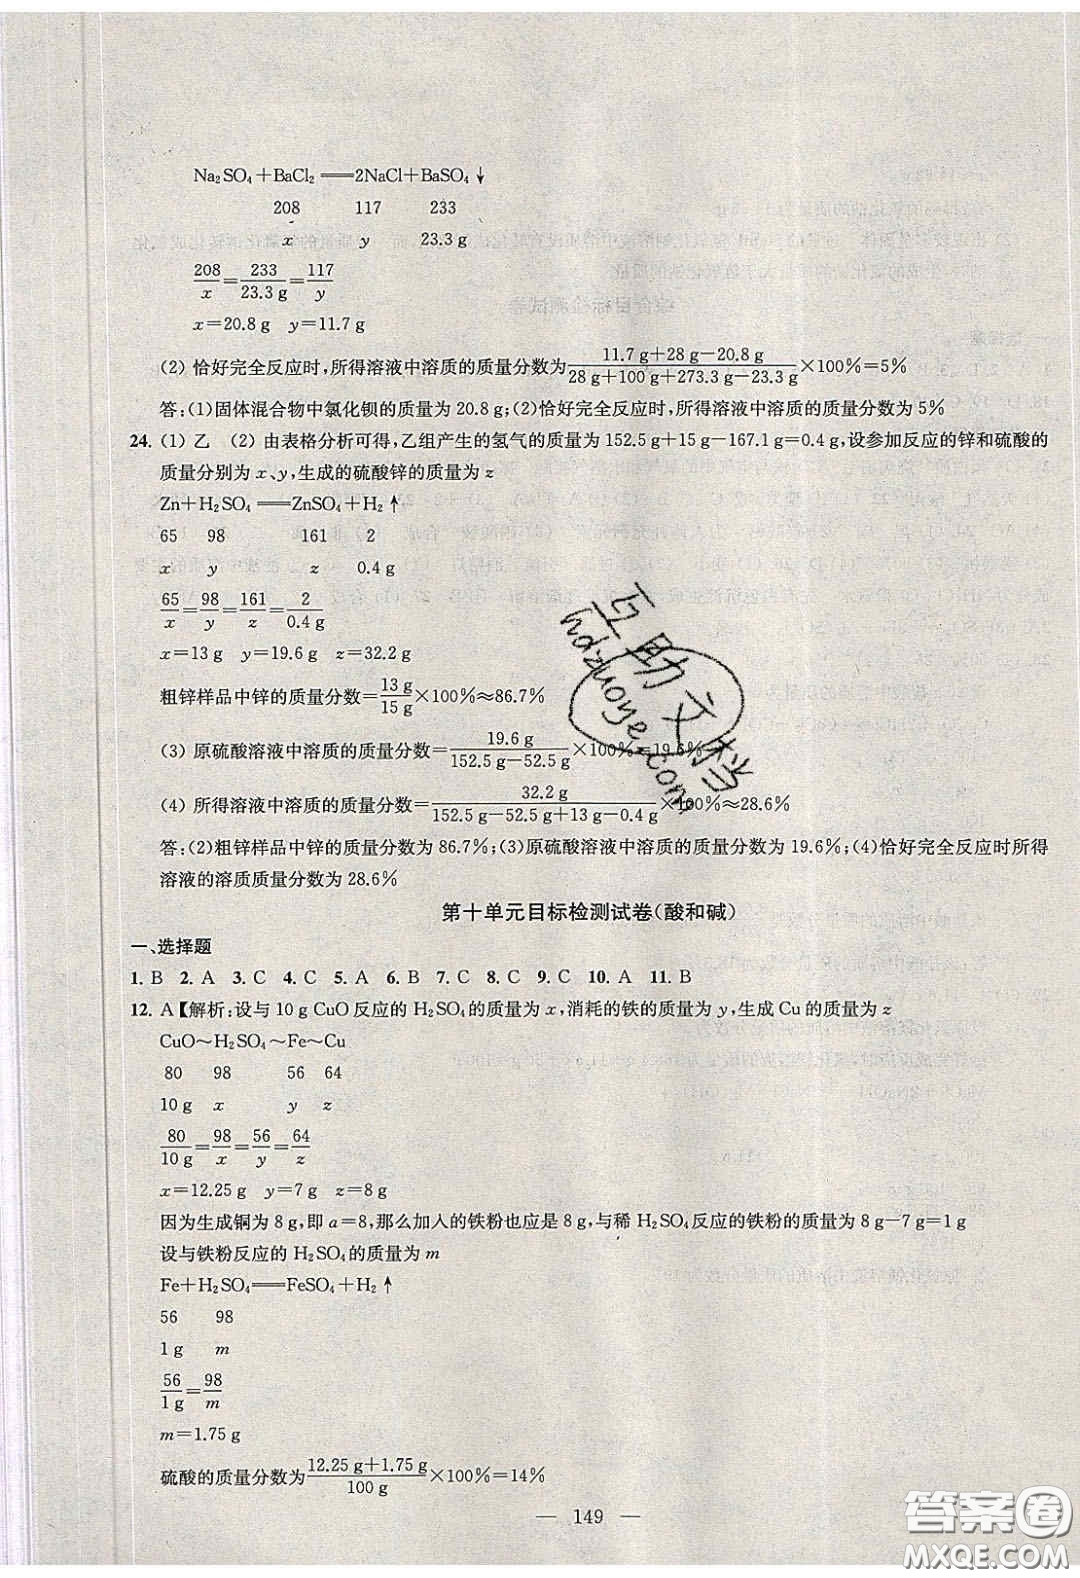 Na₂SO₄+BaCl₂══2NaCl+BaSO₄↓
208 117 233
x y 23.3 g
208/x=233/23.3 g=117/y
x=20.8 g y=11.7 g
(2) 恰好完全反应时,所得溶液中溶质的质量分数为(11.7 g+28 g-20.8 g)/(28 g+100 g+273.3 g-23.3 g)×100%=5%
答:(1)固体混合物中氯化钡的质量为20.8 g;(2)恰好完全反应时,所得溶液中溶质的质量分数为5%
24. (1) 乙 (2) 由表格分析可得,乙组产生的氢气的质量为152.5 g+15 g-167.1 g=0.4 g,设参加反应的锌和硫酸的
质量分别为x、y,生成的硫酸锌的质量为z
Zn+H₂SO₄══ZnSO₄+H₂↑
65 98 161 2
x y z 0.4 g
65/x=98/y=161/z=2/0.4 g
x=13 g y=19.6 g z=32.2 g
粗锌样品中锌的质量分数=13 g/15 g×100%≈86.7%
(3) 原硫酸溶液中溶质的质量分数=19.6 g/(152.5 g-52.5 g)×100%=19.6%
(4) 所得溶液中溶质的质量分数=32.2 g/(152.5 g-52.5 g+13 g-0.4 g)×100%≈28.6%
答:(2)粗锌样品中锌的质量分数为86.7%;(3)原硫酸溶液中溶质的质量分数为19.6%;(4)恰好完全反应时所得
溶液的溶质质量分数为28.6%
第十单元目标检测试卷(酸和碱)
一、选择题
1. B 2. A 3. C 4. C 5. A 6. B 7. C 8. C 9. C 10. A 11. B
12. A【解析:设与10 g CuO反应的H₂SO₄的质量为x,消耗的铁的质量为y,生成Cu的质量为z
CuO~H₂SO₄~Fe~Cu
80 98 56 64
10 g x y z
80/10 g=98/x=56/y=64/z
x=12.25 g y=7 g z=8 g
因为生成铜为8 g,即a=8,那么加入的铁粉也应是8 g,与稀H₂SO₄反应的铁粉的质量为8 g-7 g=1 g
设与铁粉反应的H₂SO₄的质量为m
Fe+H₂SO₄══FeSO₄+H₂↑
56 98
1 g m
56/1 g=98/m
m=1.75 g
硫酸的质量分数为(12.25 g+1.75 g)/100 g×100%=14%
— 149 —
互助文档
hdzuoye.com
答案圈
MXQE.COM